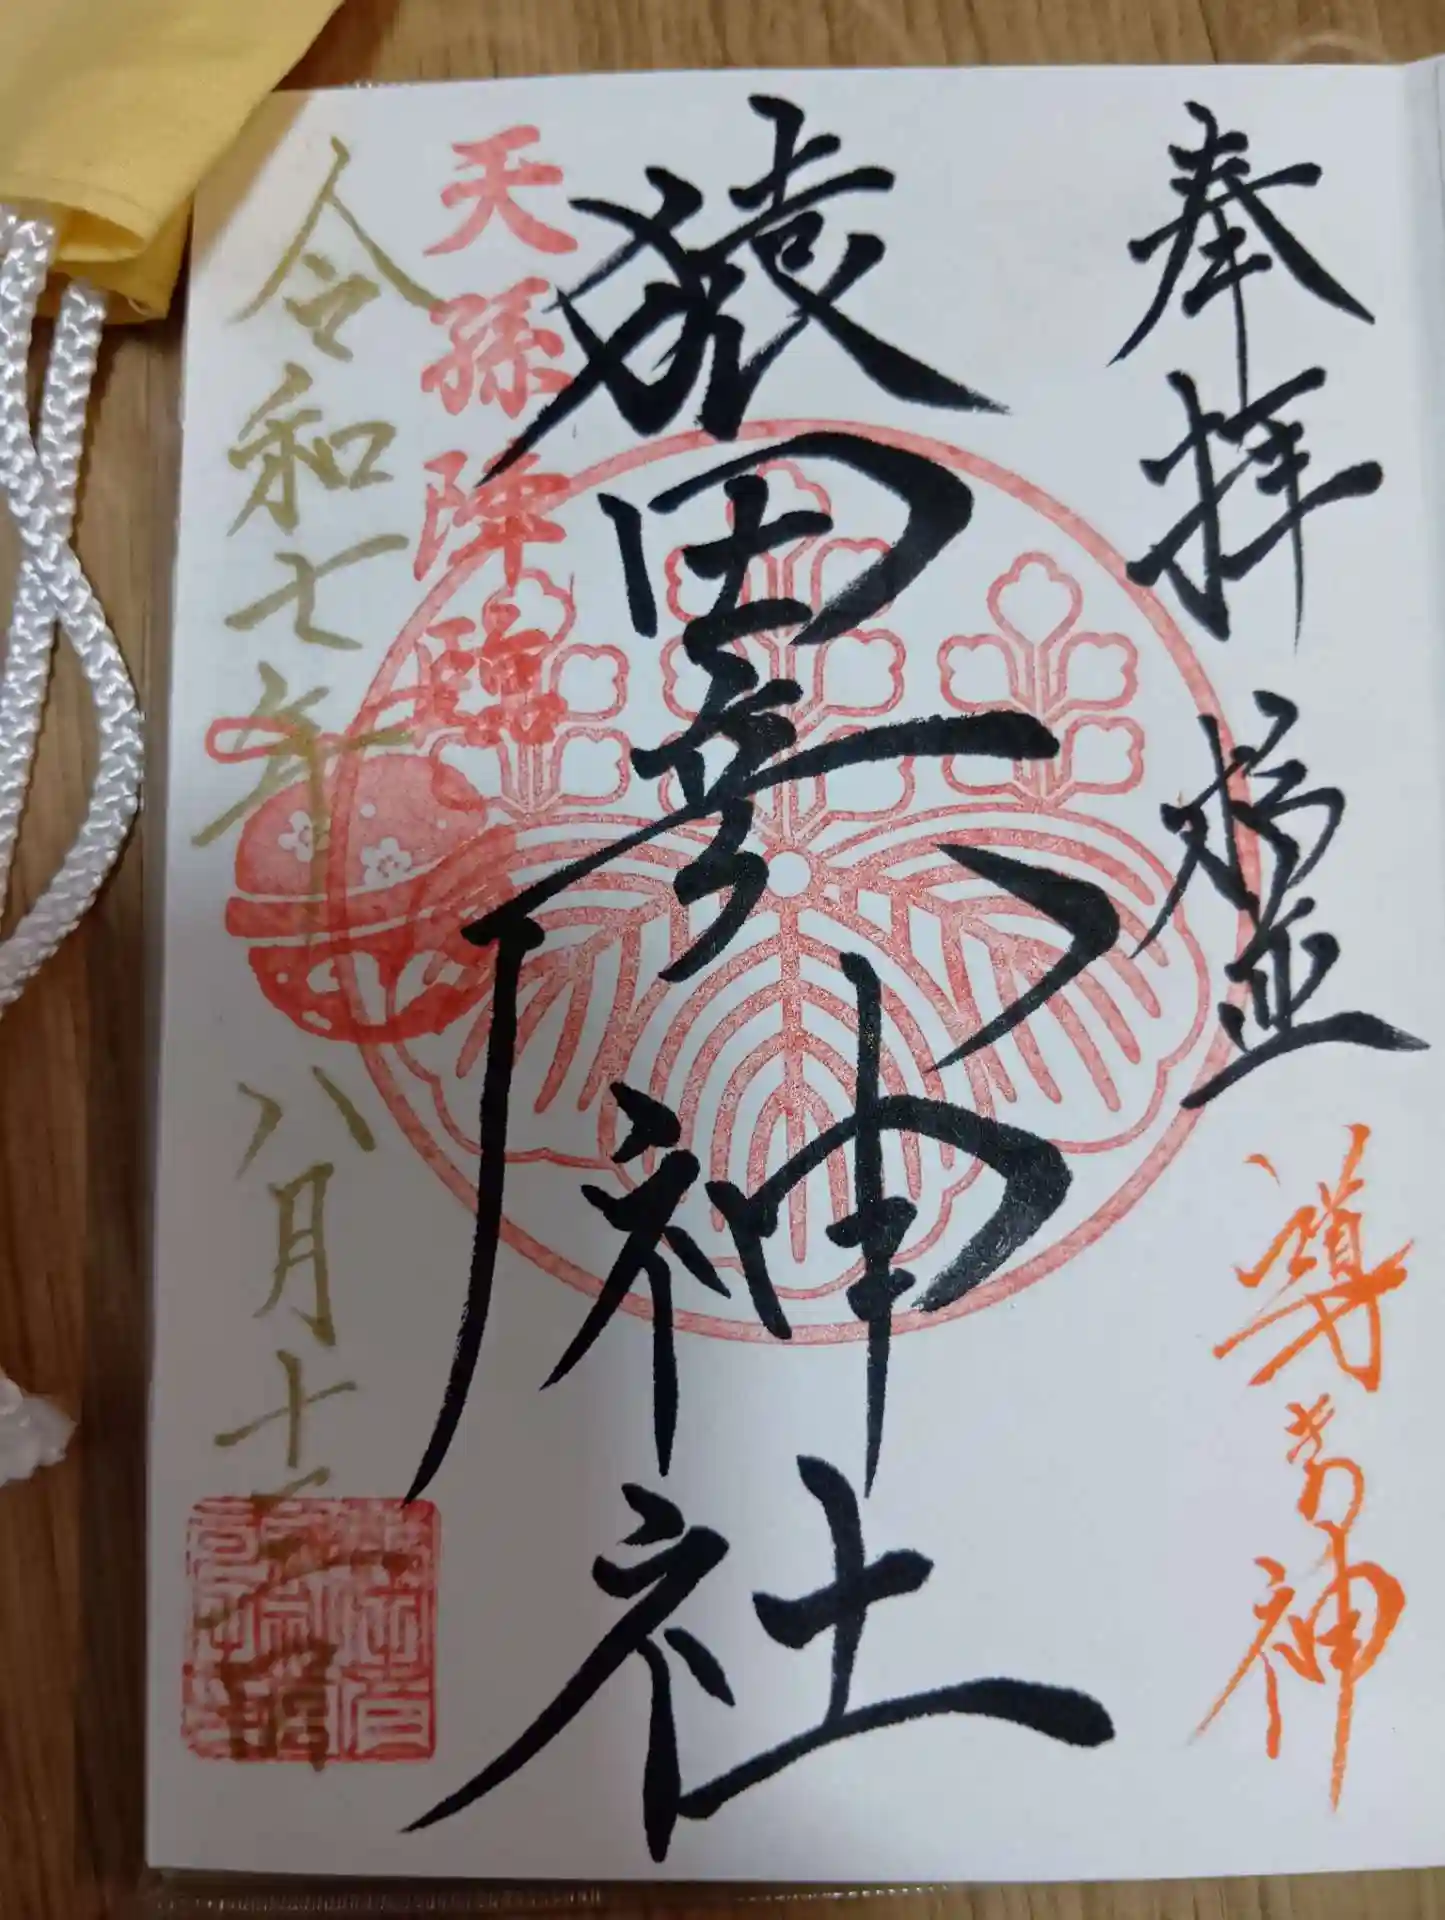 奉拝
導きの神
猿田彦神社
天孫降臨
令和七年八月十